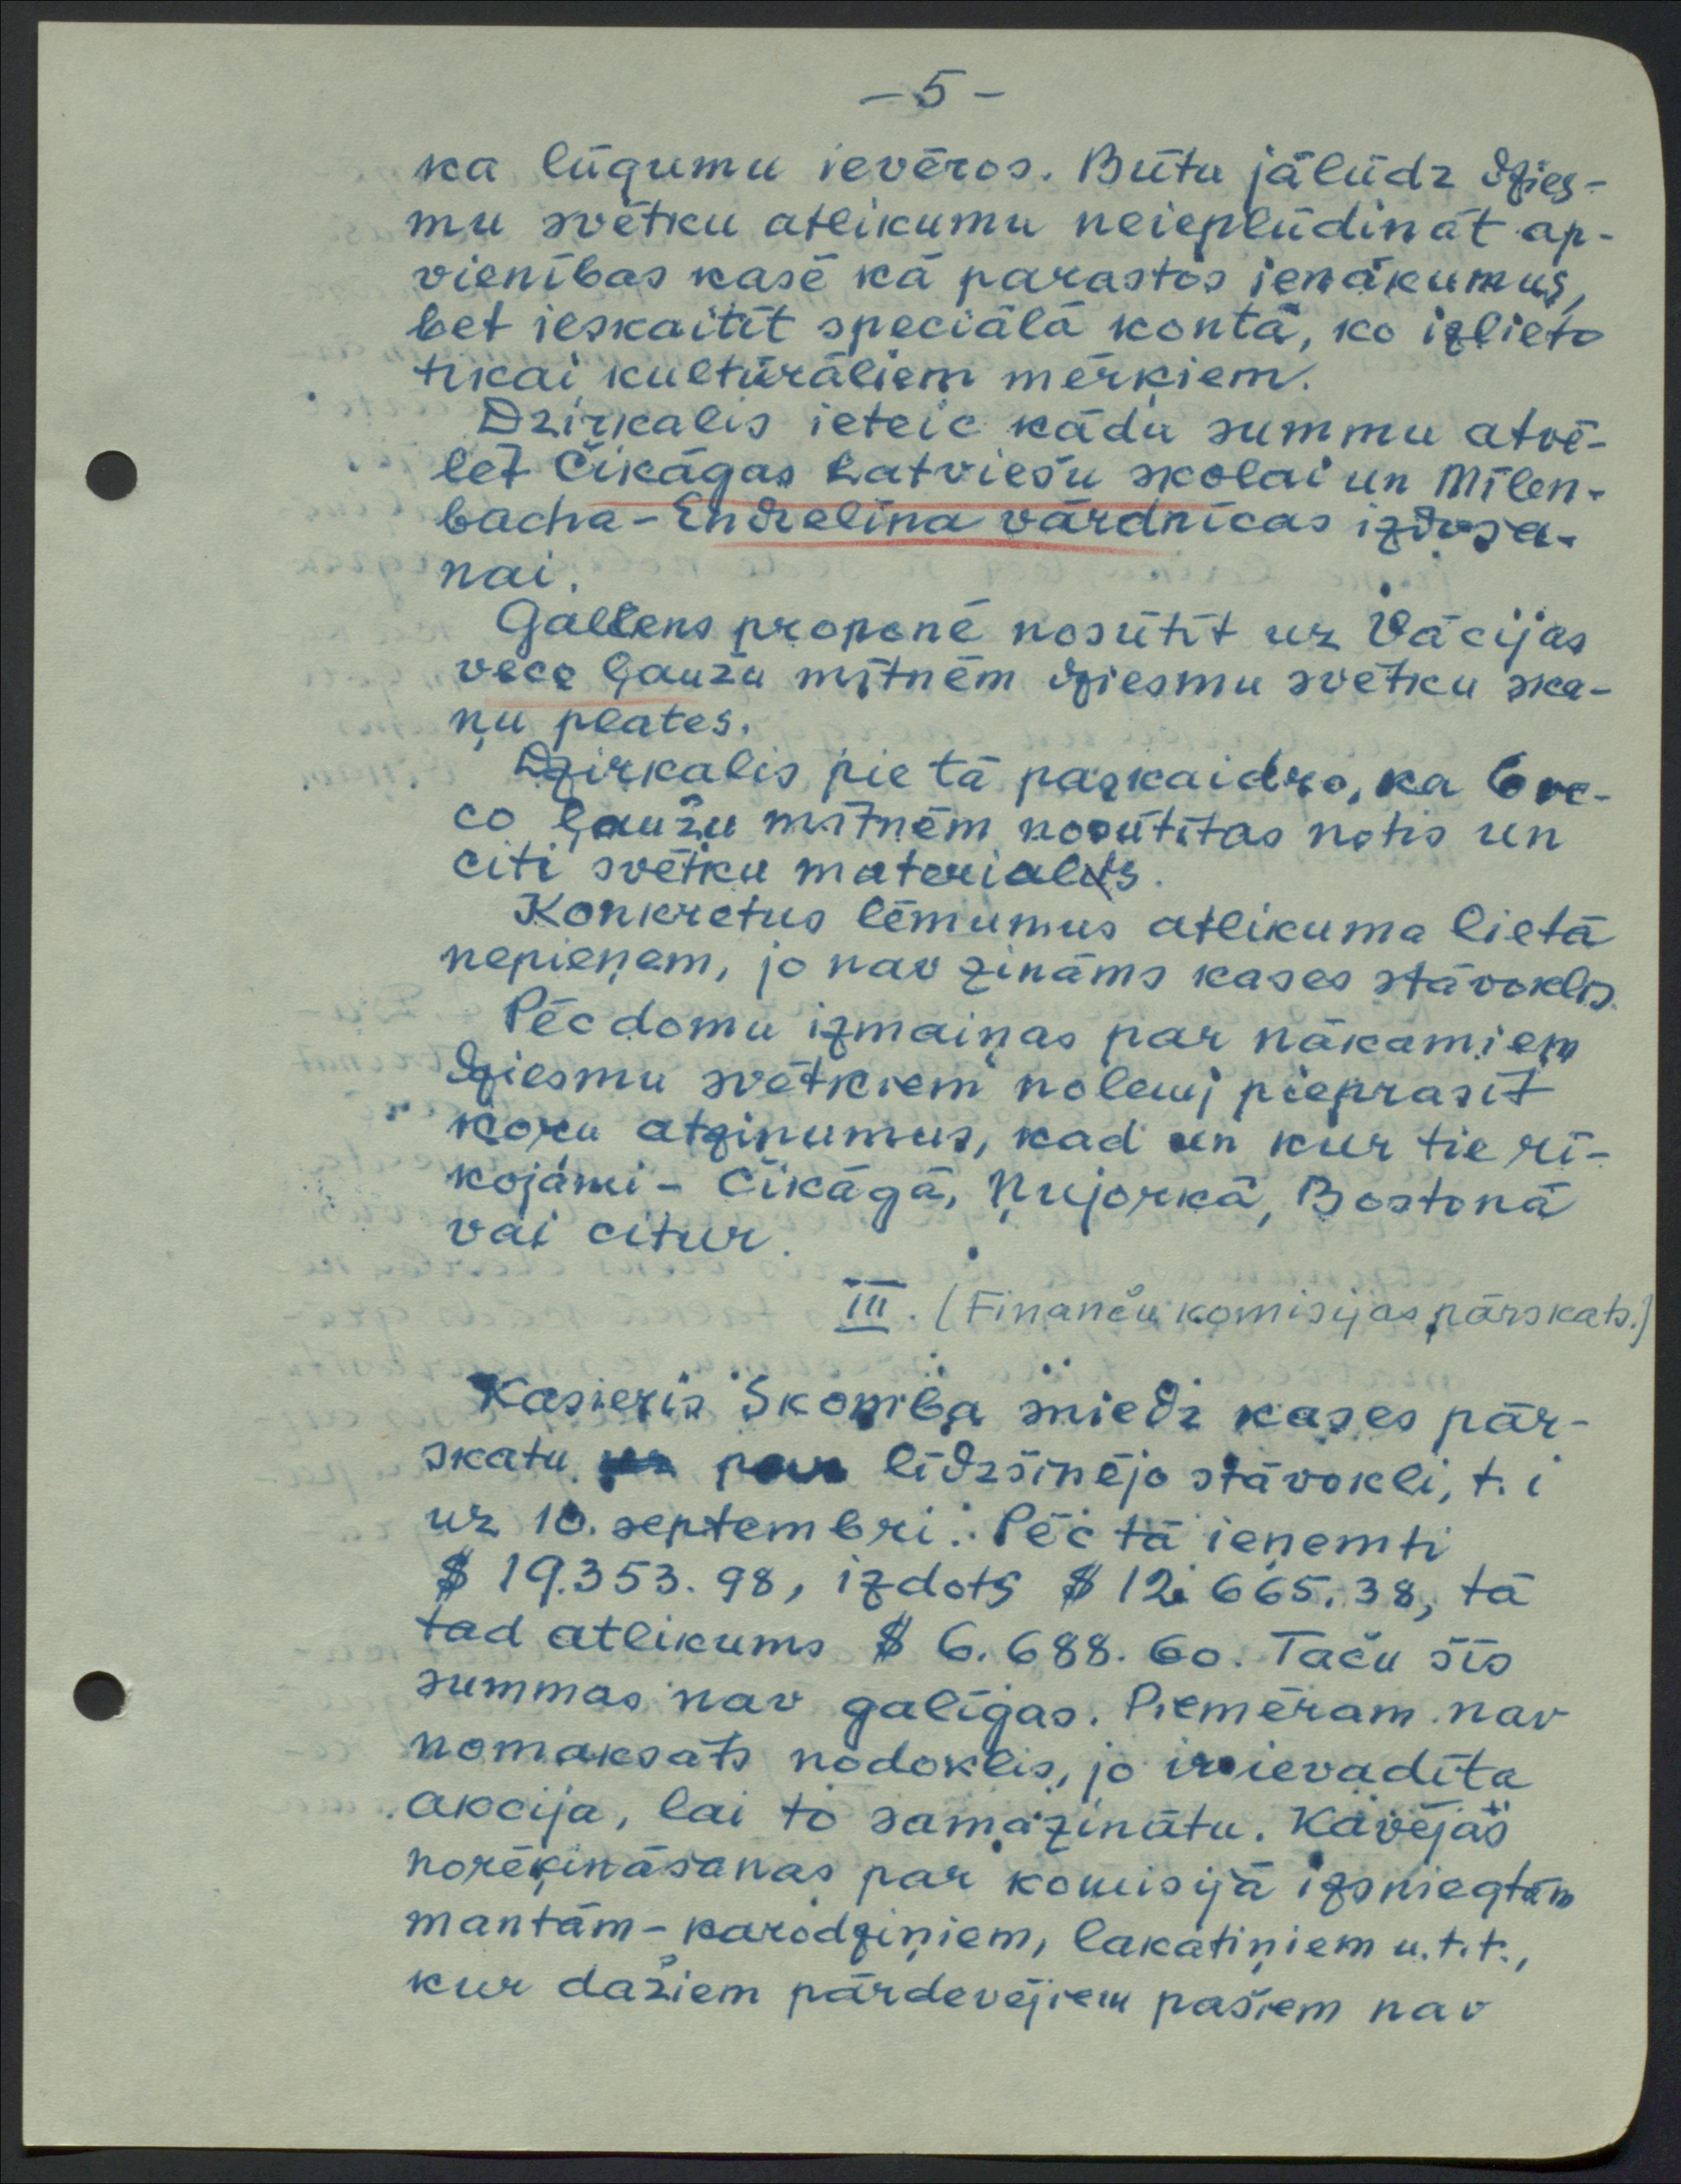 - 5 -
ka lūgumu ievēros. Būtu jālūdz dzies-
mu svētku atlikumu neieplūdināt ap-
vienības kasē kā parastos ienākumus,
bet ieskaitīt speciālā kontā, ko izlieto
tikai kultūrāliem mērķiem.
Dzirkalis ieteic kādu summu atvē-
lēt Čikāgas Latviešu skolai un Mīlen-
bacha-Endzelīna vārdnīcas izdoša-
nai.
Gallens proponē nosūtīt uz Vācijas
veco ļaužu mītnēm dziesmu svētku ska-
ņu plates.
Dzirkalis pie tā paskaidro, ka 6 ve-
co ļaužu mītnēm nosūtītas notis un
citi svētku materiali.
Konkrētus lēmumus atlikuma lietā
nepieņem, jo nav zināms kases stāvoklis.
Pēc domu izmaiņas par nākamiem
dziesmu svētkiem nolemj pieprasīt
koŗu atzinumus, kad un kur tie rī-
kojami - Čikāgā, Ņujorkā, Bostonā
vai citur.
III. (Finanču komisijas pārskats.)
Kasieris Skomba sniedz kases pār-
skatu par līdzšinējo stāvokli, t. i
uz 10. septembri. Pēc tā ieņemti
$ 19.353.98, izdots $ 12.665.38, tā
tad atlikums $ 6.688.60. Taču šīs
summas nav galīgas. Piemēram nav
nomaksāts nodoklis, jo ir ievadīta
akcija, lai to samazinātu. Kavējas
norēķināšanas par komisijā izsniegtām
mantām - karodziņiem, lakatiņiem u.t.t.,
kur dažiem pārdevējiem pašiem nav